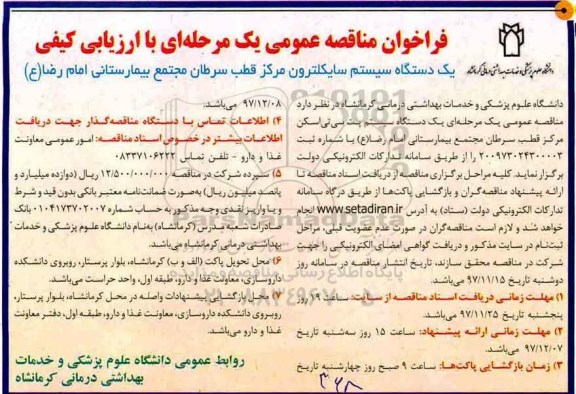 دانشگاه علوم پزشکی و خدمات بهداشتی درمانی کرمانشاه
فراخوان مناقصه عمومی یک مرحله‌ای با ارزیابی کیفی
یک دستگاه سیستم سایکلترون مرکز قطب سرطان مجتمع بیمارستانی امام رضا(ع)
دانشگاه علوم پزشکی و خدمات بهداشتی درمانی کرمانشاه در نظر دارد
مناقصه عمومی یک مرحله‌ای یک دستگاه سیستم پت سی‌تی‌اسکن
مرکز قطب سرطان مجتمع بیمارستانی امام رضا(ع) با شماره ثبت
۲۰۰۹۷۳۰۲۴۳۰۰۰۰۳ را از طریق سامانه تدارکات الکترونیکی دولت
برگزار نماید. کلیه مراحل برگزاری مناقصه از دریافت اسناد مناقصه تا
ارائه پیشنهاد مناقصه‌گران و بازگشایی پاکت‌ها از طریق درگاه سامانه
تدارکات الکترونیکی دولت (ستاد) به آدرس www.setadiran.ir انجام
خواهد شد و لازم است مناقصه‌گران در صورت عدم عضویت قبلی، مراحل
ثبت‌نام در سایت مذکور و دریافت گواهی امضای الکترونیکی را جهت
شرکت در مناقصه محقق سازند، تاریخ انتشار مناقصه در سامانه روز
دوشنبه تاریخ ۹۷/۱۱/۱۵ می‌باشد.
۱) مهلت زمانی دریافت اسناد مناقصه از سایت: ساعت ۱۹ روز
پنجشنبه تاریخ ۹۷/۱۱/۲۵ می‌باشد.
۲) مهلت زمانی ارائه پیشنهاد: ساعت ۱۵ روز سه‌شنبه تاریخ
۹۷/۱۲/۰۷ می‌باشد.
۳) زمان بازگشایی پاکت‌ها: ساعت ۹ صبح روز چهارشنبه تاریخ
۹۷/۱۲/۰۸ می‌باشد.
۴) اطلاعات تماس با دستگاه مناقصه‌گذار جهت دریافت
اطلاعات بیشتر در خصوص اسناد مناقصه: امور عمومی معاونت
غذا و دارو - تلفن تماس ۰۸۳۳۷۱۰۶۲۲۲
۵) سپرده شرکت در مناقصه ۱۲/۵۰۰/۰۰۰/۰۰۰ ریال (دوازده میلیارد و
پانصد میلیون ریال) به‌صورت ضمانت‌نامه معتبر بانکی بدون قید و شرط
و یا واریز نقدی وجه مذکور به حساب شماره ۰۱۰۴۱۷۳۷۰۲۰۰۷ بانک
صادرات شعبه مدرس (کرمانشاه) به‌نام دانشگاه علوم پزشکی و خدمات
بهداشتی درمانی کرمانشاه می‌باشد.
۶) محل تحویل پاکت (الف و ب) کرمانشاه، بلوار پرستار، روبروی دانشکده
داروسازی، معاونت غذا و دارو، طبقه اول، واحد حراست می‌باشد.
۷) محل بازگشایی پیشنهادات واصله در محل کرمانشاه، بلوار پرستار،
روبروی دانشکده داروسازی، معاونت غذا و دارو، طبقه اول، دفتر معاونت
غذا و دارو می‌باشد.
روابط عمومی دانشگاه علوم پزشکی و خدمات
بهداشتی درمانی کرمانشاه